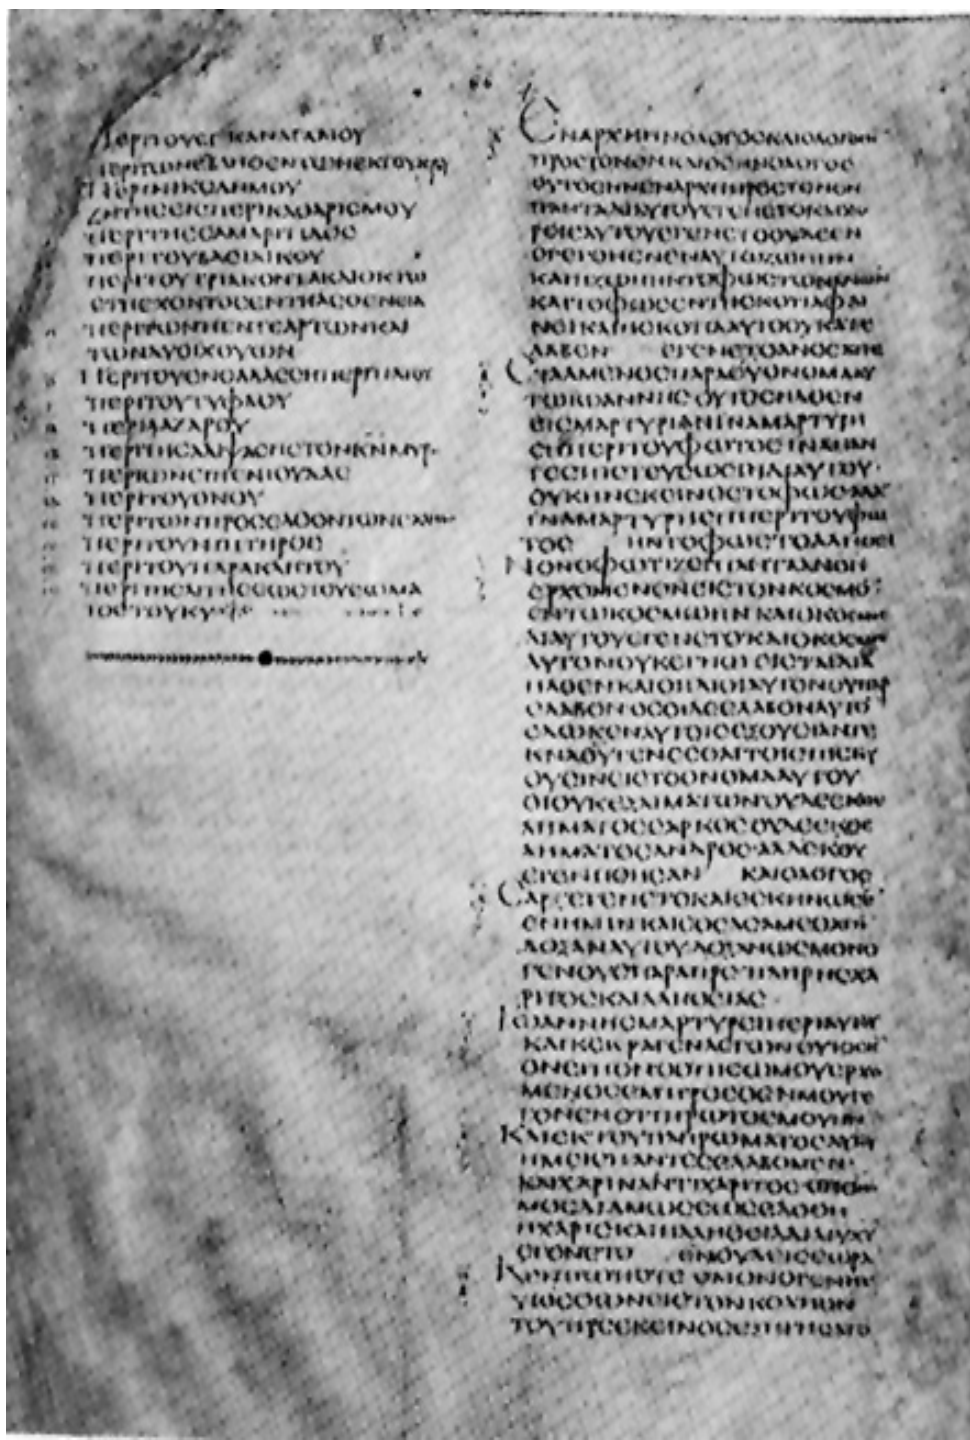 ΠΕΡΙΤΟΥΕΝΚΑΝΑΓΑΜΟΥ
ΠΕΡΙΤΩΝΕΚΒΛΗΘΕΝΤΩΝΕΚΤΟΥΙΕΡΟΥ
ΠΕΡΙΝΙΚΟΔΗΜΟΥ
ΖΗΤΗϹΕΙϹΠΕΡΙΚΑΘΑΡΙϹΜΟΥ
ΠΕΡΙΤΗϹϹΑΜΑΡΙΤΙΔΟϹ
ΠΕΡΙΤΟΥΒΑϹΙΛΙΚΟΥ
ΠΕΡΙΤΟΥΤΡΙΑΚΟΝΤΑΚΑΙΟΚΤΩ
ΕΤΗΕΧΟΝΤΟϹΕΝΤΗΑϹΘΕΝΕΙΑ
ΠΕΡΙΤΩΝΠΕΝΤΕΑΡΤΩΝΚΑΙ
ΤΩΝΔΥΟΙΧΘΥΩΝ
ΠΕΡΙΤΟΥΕΝΘΑΛΑϹϹΗΠΕΡΙΠΑΤΟΥ
ΠΕΡΙΤΟΥΤΥΦΛΟΥ
ΠΕΡΙΛΑΖΑΡΟΥ
ΠΕΡΙΤΗϹΑΛΙΨΑϹΗϹΤΟΝΚΝΜΥΡ
ΠΕΡΙΩΝΕΙΠΕΝΙΟΥΔΑϹ
ΠΕΡΙΤΟΥΟΝΟΥ
ΠΕΡΙΤΩΝΠΡΟϹΕΛΘΟΝΤΩΝΕΛΛΗΝ
ΠΕΡΙΤΟΥΝΙΠΤΗΡΟϹ
ΠΕΡΙΤΟΥΠΑΡΑΚΛΗΤΟΥ
ΠΕΡΙΤΗϹΑΙΤΗϹΕΩϹΤΟΥϹΩΜΑ
ΤΟϹΤΟΥΚΥ
ΕΝΑΡΧΗΗΝΟΛΟΓΟϹΚΑΙΟΛΟΓΟϹΗΝ
ΠΡΟϹΤΟΝΘΝΚΑΙΘϹΗΝΟΛΟΓΟϹ
ΟΥΤΟϹΗΝΕΝΑΡΧΗΠΡΟϹΤΟΝΘΝ
ΠΑΝΤΑΔΙΑΥΤΟΥΕΓΕΝΕΤΟΚΑΙΧΩ
ΡΕΙϹΑΥΤΟΥΕΓΕΝΕΤΟΟΥΔΕΕΝ
ΟΓΕΓΟΝΕΝΕΝΑΥΤΩΖΩΗΗΝ
ΚΑΙΗΖΩΗΗΝΤΟΦΩϹΤΩΝΑΝΩΝ
ΚΑΙΤΟΦΩϹΕΝΤΗϹΚΟΤΙΑΦΑΙ
ΝΕΙΚΑΙΗϹΚΟΤΙΑΑΥΤΟΟΥΚΑΤΕ
ΛΑΒΕΝ ΕΓΕΝΕΤΟΑΝΟϹΑΠΕ
ϹΤΑΛΜΕΝΟϹΠΑΡΑΘΥΟΝΟΜΑΑΥ
ΤΩΙΩΑΝΝΗϹΟΥΤΟϹΗΛΘΕΝ
ΕΙϹΜΑΡΤΥΡΙΑΝΙΝΑΜΑΡΤΥΡΗ
ϹΗΠΕΡΙΤΟΥΦΩΤΟϹΙΝΑΠΑΝ
ΤΕϹΠΙϹΤΕΥϹΩϹΙΝΔΙΑΥΤΟΥ
ΟΥΚΗΝΕΚΕΙΝΟϹΤΟΦΩϹΑΛΛ
ΙΝΑΜΑΡΤΥΡΗϹΗΠΕΡΙΤΟΥΦΩ
ΤΟϹ ΗΝΤΟΦΩϹΤΟΑΛΗΘΕΙ
ΝΟΝΟΦΩΤΙΖΕΙΠΑΝΤΑΑΝΟΝ
ΕΡΧΟΜΕΝΟΝΕΙϹΤΟΝΚΟϹΜΟ
ΕΝΤΩΚΟϹΜΩΗΝΚΑΙΟΚΟϹΜΟϹ
ΔΙΑΥΤΟΥΕΓΕΝΕΤΟΚΑΙΟΚΟϹΜΟϹ
ΑΥΤΟΝΟΥΚΕΓΝΩΕΙϹΤΑΙΔΙΑ
ΗΛΘΕΝΚΑΙΟΙΙΔΙΟΙΑΥΤΟΝΟΥΠΑΡ
ΕΛΑΒΟΝΟϹΟΙΔΕΕΛΑΒΟΝΑΥΤΟ
ΕΔΩΚΕΝΑΥΤΟΙϹΕΞΟΥϹΙΑΝΤΕ
ΚΝΑΘΥΓΕΝΕϹΘΑΙΤΟΙϹΠΙϹΤΕΥ
ΟΥϹΙΝΕΙϹΤΟΟΝΟΜΑΑΥΤΟΥ
ΟΙΟΥΚΕΞΑΙΜΑΤΩΝΟΥΔΕΕΚΘΕ
ΛΗΜΑΤΟϹϹΑΡΚΟϹΟΥΔΕΕΚΘΕ
ΛΗΜΑΤΟϹΑΝΔΡΟϹΑΛΛΕΚΘΥ
ΕΓΕΝΝΗΘΗϹΑΝ ΚΑΙΟΛΟΓΟϹ
ϹΑΡΞΕΓΕΝΕΤΟΚΑΙΕϹΚΗΝΩϹΕ
ΕΝΗΜΙΝΚΑΙΕΘΕΑϹΑΜΕΘΑΤΗ
ΔΟΞΑΝΑΥΤΟΥΔΟΞΑΝΩϹΜΟΝΟ
ΓΕΝΟΥϹΠΑΡΑΠΡϹΠΛΗΡΗϹΧΑ
ΡΙΤΟϹΚΑΙΑΛΗΘΕΙΑϹ
ΙΩΑΝΝΗϹΜΑΡΤΥΡΕΙΠΕΡΙΑΥΤΟΥ
ΚΑΙΚΕΚΡΑΓΕΝΛΕΓΩΝΟΥΤΟϹΗ
ΟΝΕΙΠΟΝΟΟΠΙϹΩΜΟΥΕΡΧΟ
ΜΕΝΟϹΕΜΠΡΟϹΘΕΝΜΟΥΓΕ
ΓΟΝΕΝΟΤΙΠΡΩΤΟϹΜΟΥΗΝ
ΚΑΙΕΚΤΟΥΠΛΗΡΩΜΑΤΟϹΑΥΤΟΥ
ΗΜΕΙϹΠΑΝΤΕϹΕΛΑΒΟΜΕΝ
ΚΑΙΧΑΡΙΝΑΝΤΙΧΑΡΙΤΟϹΟΤΙΟΝΟ
ΜΟϹΔΙΑΜΩϹΕΩϹΕΔΟΘΗ
ΗΧΑΡΙϹΚΑΙΗΑΛΗΘΕΙΑΔΙΑΙΥΧΥ
ΕΓΕΝΕΤΟ ΘΝΟΥΔΕΙϹΕΩΡΑ
ΚΕΝΠΩΠΟΤΕΟΜΟΝΟΓΕΝΗϹ
ΥΙΟϹΟΩΝΕΙϹΤΟΝΚΟΛΠΟΝ
ΤΟΥΠΡϹΕΚΕΙΝΟϹΕΞΗΓΗϹΑΤΟ